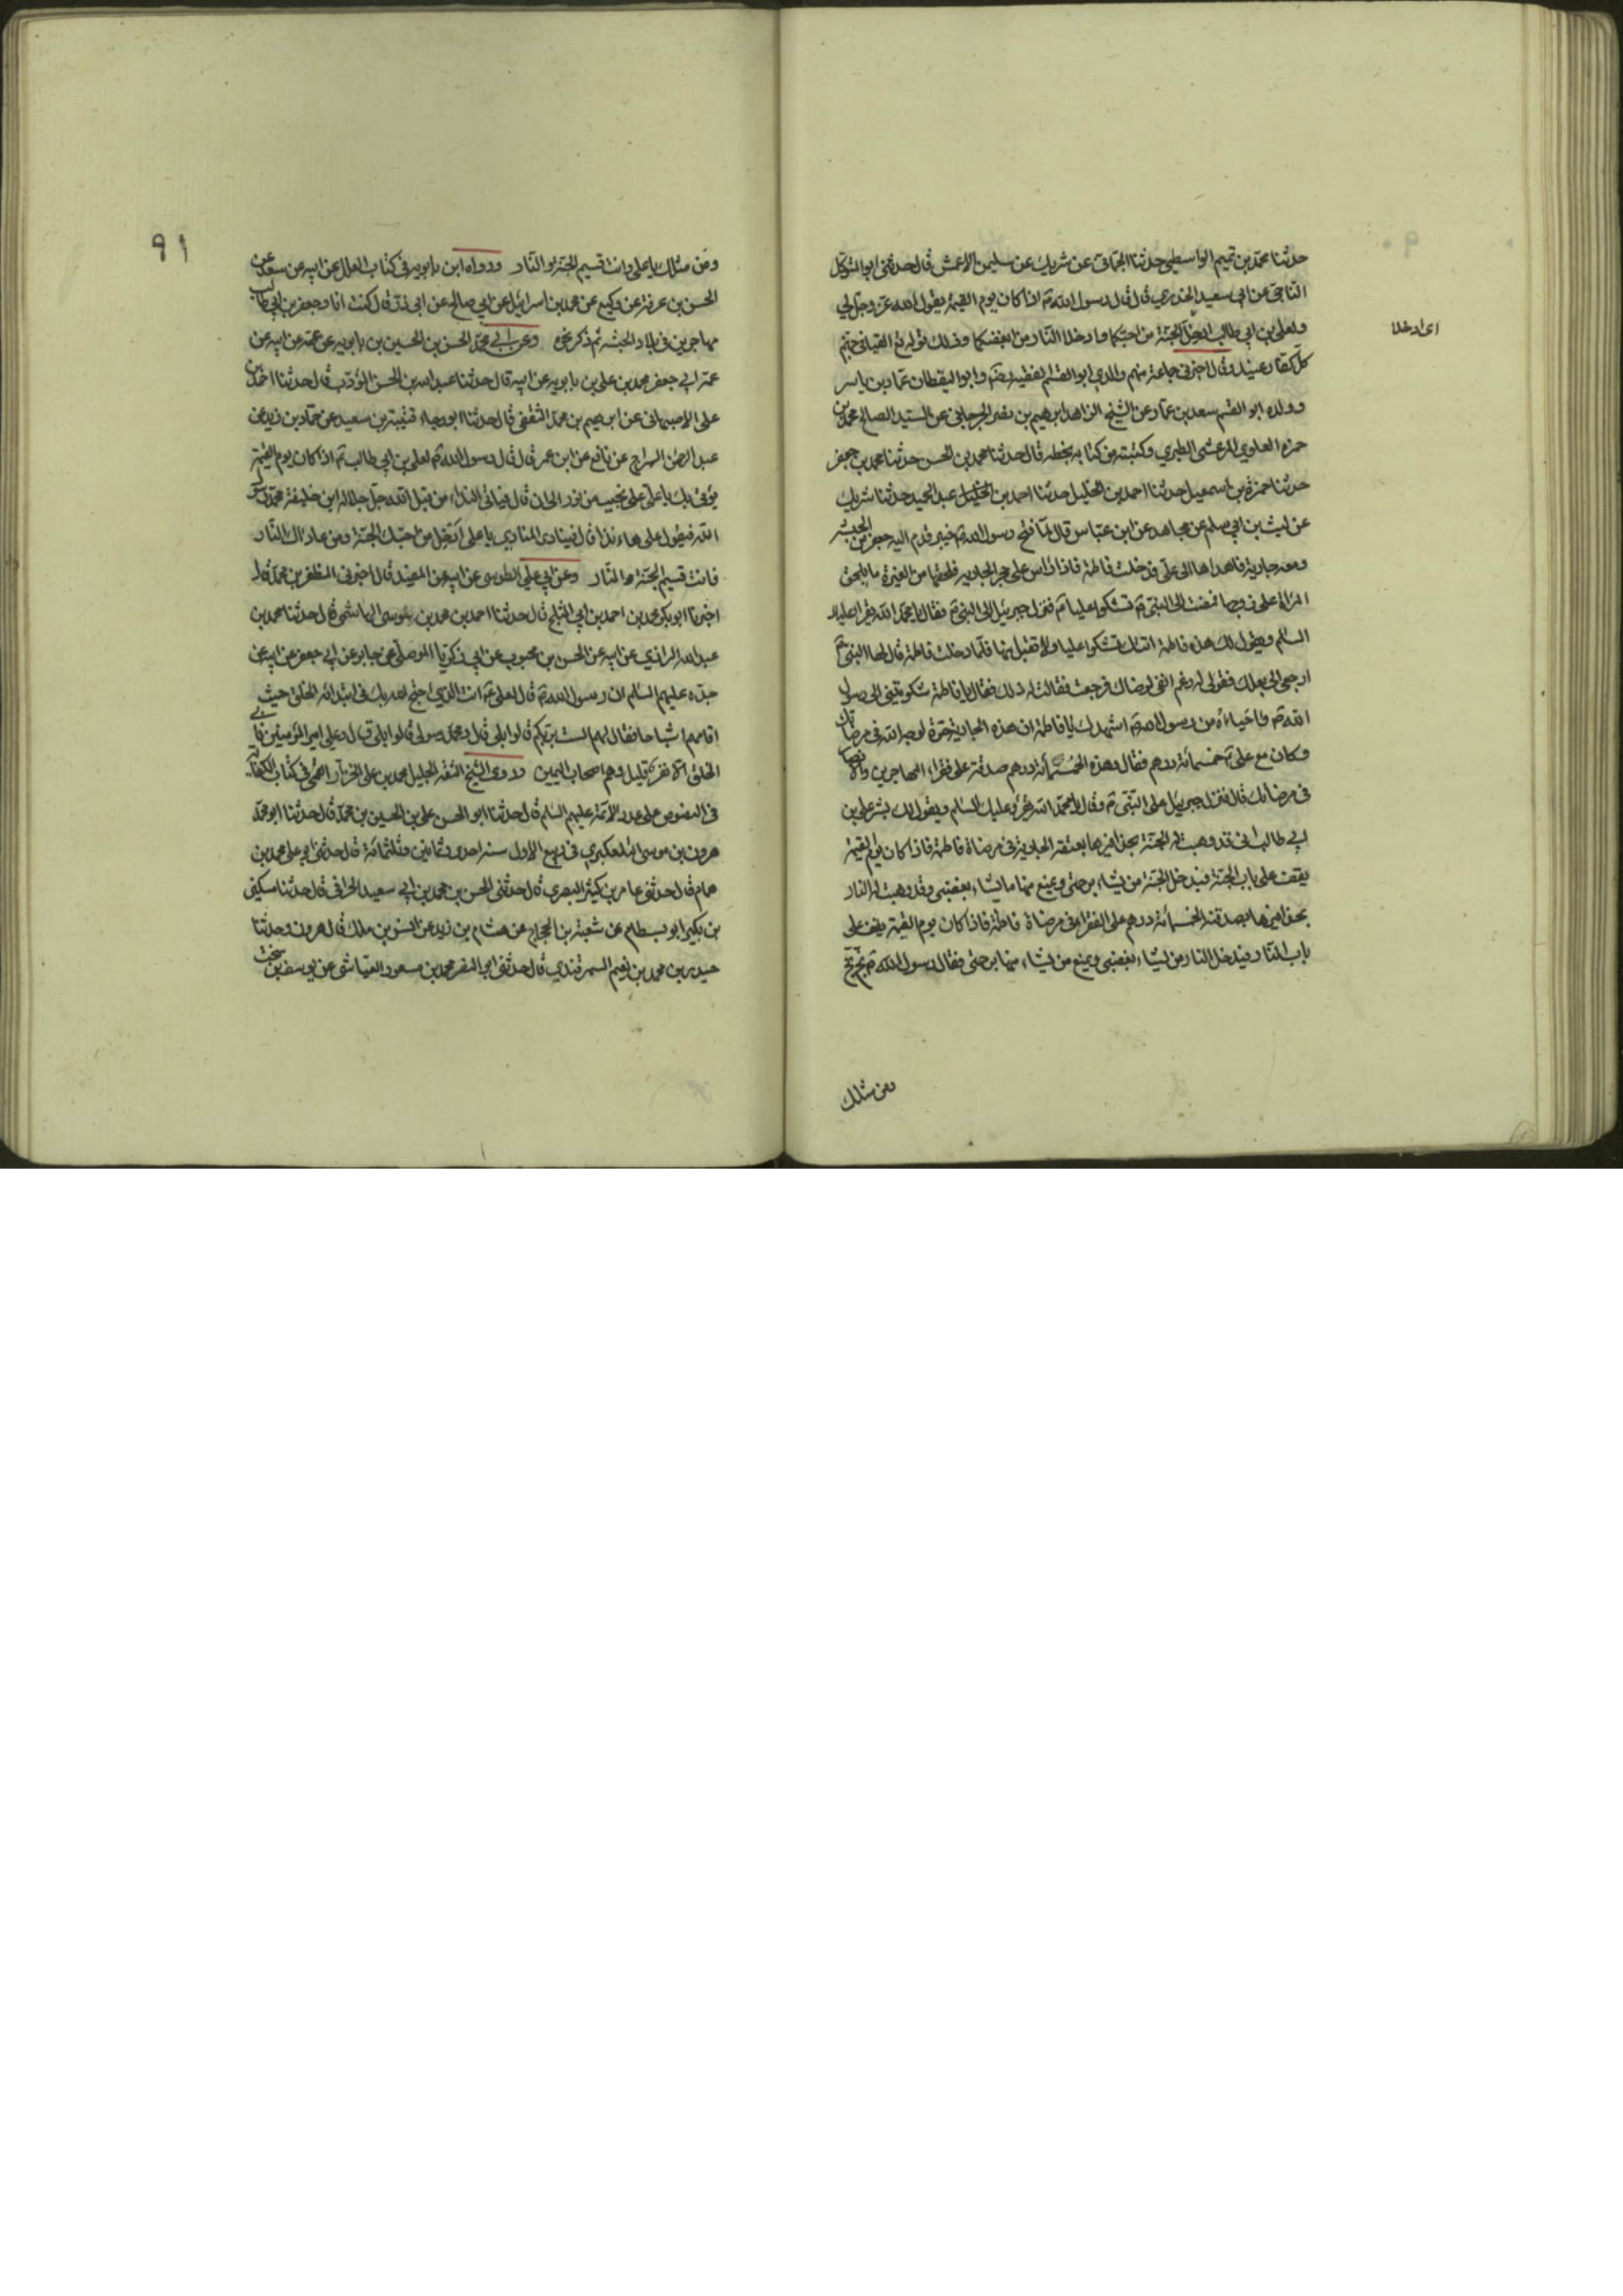 حدثنا محمد بن تميم الواسطي حدثنا الحماني عن شريك عن سليمن الاعمش قال حدثني ابو المتوكل
الناجي عن ابي سعيد الخدري قال قال رسول الله ص اذا كان يوم القيمة يقول الله عز وجل لي
ولعلي بن ابي طالب ادخلا الجنة من احبكما وادخلا النار من ابغضكما وذلك قوله تع القيا في جهنم
اى ادخلا
كل كفار عنيد وقال اخبرني جماعة منهم والدي ابو القسم الفقيه رضه وابو اليقظان عمار بن ياسر
وولده ابو القسم سعد بن عمار عن الشيخ الزاهد ابرهيم بن نصر الجرجاني عن السيد الصالح محمد بن
حمزه العلوي المرعشي الطبري وكتبته من كتابه بخطه قال حدثنا محمد بن الحسن حدثنا محمد بن جعفر
حدثنا حمزة بن اسمعيل حدثنا احمد بن الخليل حدثنا احمد بن الخليل عبد الحميد حدثنا شريك
عن ليث بن ابي سلم عن مجاهد عن ابن عباس قال لما فتح رسول الله ص خيبر قدم اليه جعفر من الحبشه
ومعه جارية فاهداها الى علي فدخلت فاطمة فاذا راس علي في حجر الجاريه فلحقها من الغيرة ما يلحق
المراة على زوجها فمضت الى النبي ص تشكو عليا ع فنزل جبرئيل الى النبي ص فقال يا محمد الله يقرا عليك
السلم ويقول لك هذه فاطمة اتتك تشكو عليا ولا تقبل منها فلما دخلت فاطمة قال لها النبي ص
ارجعي الى بعلك فقولي له رغم انفي لرضاك فرجعت فقالت له ذلك فقال يا فاطمة شكوتيني الى رسول
الله ص واحياءاه من رسول الله ص اشهدك يا فاطمة ان هذه الجارية حرة لوجه الله في مرضاتك
وكان مع علي ع خمسمائة درهم فقال وهذه الخمسمائة درهم صدقة على فقراء المهاجرين والانصار
في مرضاتك قال فنزل جبرئيل على النبي ص وقال يا محمد الله يقرؤ عليك السلم ويقول لك بشر علي بن
ابي طالب اني قد وهبت له الجنة بحذافيرها بعتقه الجارية في مرضاة فاطمة فاذا كان يوم القيمة
يقف على باب الجنة فيدخل الجنة من يشاء برحمتي ويمنع منها ما يشاء بغضبي وقد وهبت له النار
بحذافيرها بصدقته الخمسمائة درهم على الفقراء في مرضاة فاطمة فاذا كان يوم القيمة يقف على
باب النار فيدخل النار من يشاء بغضبي ويمنع من يشاء منها برحمتي فقال رسول الله ص بخ بخ
ومن مثلك
٩١
ومن مثلك يا علي وانت قسيم الجنة والنار ورواه ابن بابويه في كتاب العلل عن ابيه عن سعد عن
الحسن بن عرفة عن وكيع عن محمد بن اسرائيل عن ابي صالح عن ابي ذر قال كنت انا وجعفر بن ابي طالب
مهاجرين في بلاد الحبشه ثم ذكر نحوه وعن ابي محمد الحسن بن الحسين بن بابويه عن عمه عن ابيه عن
عمه ابي جعفر محمد بن علي بن بابويه عن ابيه قال حدثنا عبد الله بن الحسن المؤدب قال حدثنا احمد بن
علي الاصبهاني عن ابرهيم بن محمد الثقفي قال حدثنا ابو رجاء قتيبة بن سعيد عن حماد بن زيد عن
عبد الرحمن السراج عن نافع عن ابن عمر قال قال رسول الله ص لعلي بن ابي طالب ع اذا كان يوم القيمة
يؤتى بك يا علي على نجيب من نور قال فياتي النداء من قبل الله جل جلاله اين خليفة محمد رسول
الله فيقول علي هاء نذا قال فينادي المنادي يا علي ادخل من احبك الجنة ومن عاداك النار
فانت قسيم الجنة والنار وعن ابي علي الطوسي عن ابيه عن المفيد قال اخبرني المظفر بن محمد قال
اخبرنا ابو بكر محمد بن احمد بن ابي الثلج قال حدثنا احمد بن محمد بن موسى الهاشمي قال حدثنا محمد بن
عبد الله الرازي عن ابيه عن الحسن بن محبوب عن ابي زكريا الموصلي عن جابر عن ابي جعفر عن ابيه عن
جده عليهم السلم ان رسول الله ص قال لعلي ع انت الذي احتج الله بك في ابتدائه الخلق حيث
اقامهم اشباحا فقال لهم الست بربكم قالوا بلى قال ومحمد رسولي قالوا بلى قال وعلي امير المؤمنين فابى
الخلق الا نفر قليل وهم اصحاب اليمين وروى الشيخ الثقة الجليل محمد بن علي الخزاز القمي في كتاب الكفاية
في النصوص على عدد الائمة عليهم السلم قال حدثنا ابو الحسن علي بن الحسين بن محمد قال حدثنا ابو محمد
هرون بن موسى التلعكبري في ربيع الاول سنه احدى وثمانين وثلثمائة قال حدثني ابو علي محمد بن
همام قال حدثني عامر بن كثير البصري قال حدثني الحسن بن محمد بن ابي سعيد الحراني قال حدثنا مسكين
بن بكير ابو بسطام عن شعبة بن الحجاج عن هشام بن زيد عن انس بن ملك قال هرون وحدثنا
حيدر بن محمد بن نعيم السمرقندي قال حدثني ابو النضر محمد بن مسعود العياشي عن يوسف بن سخت